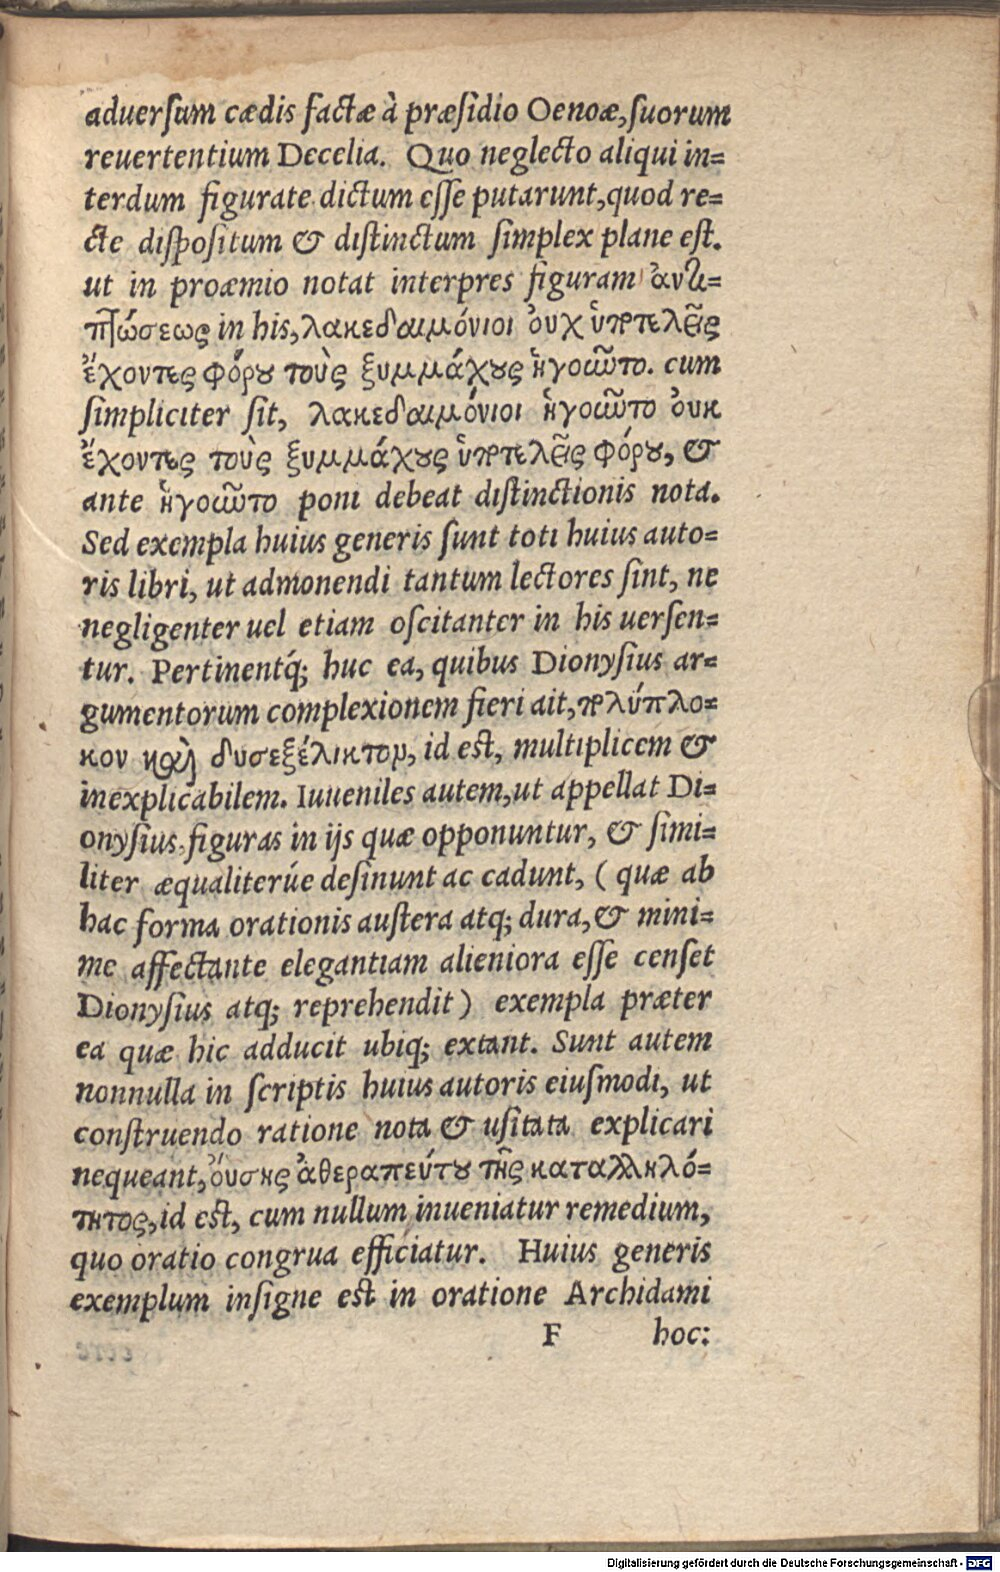 aduerſum cædis factæ à præſidio Oenoæ, ſuorum
reuertentium Decelia. Quo neglecto aliqui in=
terdum figurate dictum eſſe putarunt, quod re=
cte diſpoſitum & diſtinctum ſimplex plane eſt.
ut in proœmio notat interpres figuram ἀντι=
πτώσεως in his, λακεδαιμόνιοι ὀυχ ὑποτελεῖς
ἔχοντες φόρου τοὺς ξυμμάχους ἡγοῦντο. cum
ſimpliciter ſit, λακεδαιμόνιοι ἡγοῦντο ὀυκ
ἔχοντες τοὺς ξυμμάχους ὑποτελεῖς φόρου, &
ante ἡγοῦντο poni debeat diſtinctionis nota.
Sed exempla huius generis ſunt toti huius auto=
ris libri, ut admonendi tantum lectores ſint, ne
negligenter uel etiam oſcitanter in his uerſen=
tur. Pertinentq́; huc ea, quibus Dionyſius ar=
gumentorum complexionem fieri ait, πολύπλο=
κον καὶ δυσεξέλικτον, id eſt, multiplicem &
inexplicabilem. Iuueniles autem, ut appellat Di=
onyſius figuras in ijs quæ opponuntur, & ſimi=
liter æqualiterúe deſinunt ac cadunt, ( quæ ab
hac forma orationis auſtera atq; dura, & mini=
me affectante elegantiam alieniora eſſe cenſet
Dionyſius atq; reprehendit ) exempla præter
ea quæ hic adducit ubiq; extant. Sunt autem
nonnulla in ſcriptis huius autoris eiuſmodi, ut
conſtruendo ratione nota & uſitata explicari
nequeant, ὄυσης ἀθεραπεύτου τῆς καταλληλό=
τητος, id eſt, cum nullum inueniatur remedium,
quo oratio congrua efficiatur. Huius generis
exemplum inſigne eſt in oratione Archidami
F hoc:
Digitalisierung gefördert durch die Deutsche Forschungsgemeinschaft - DFG